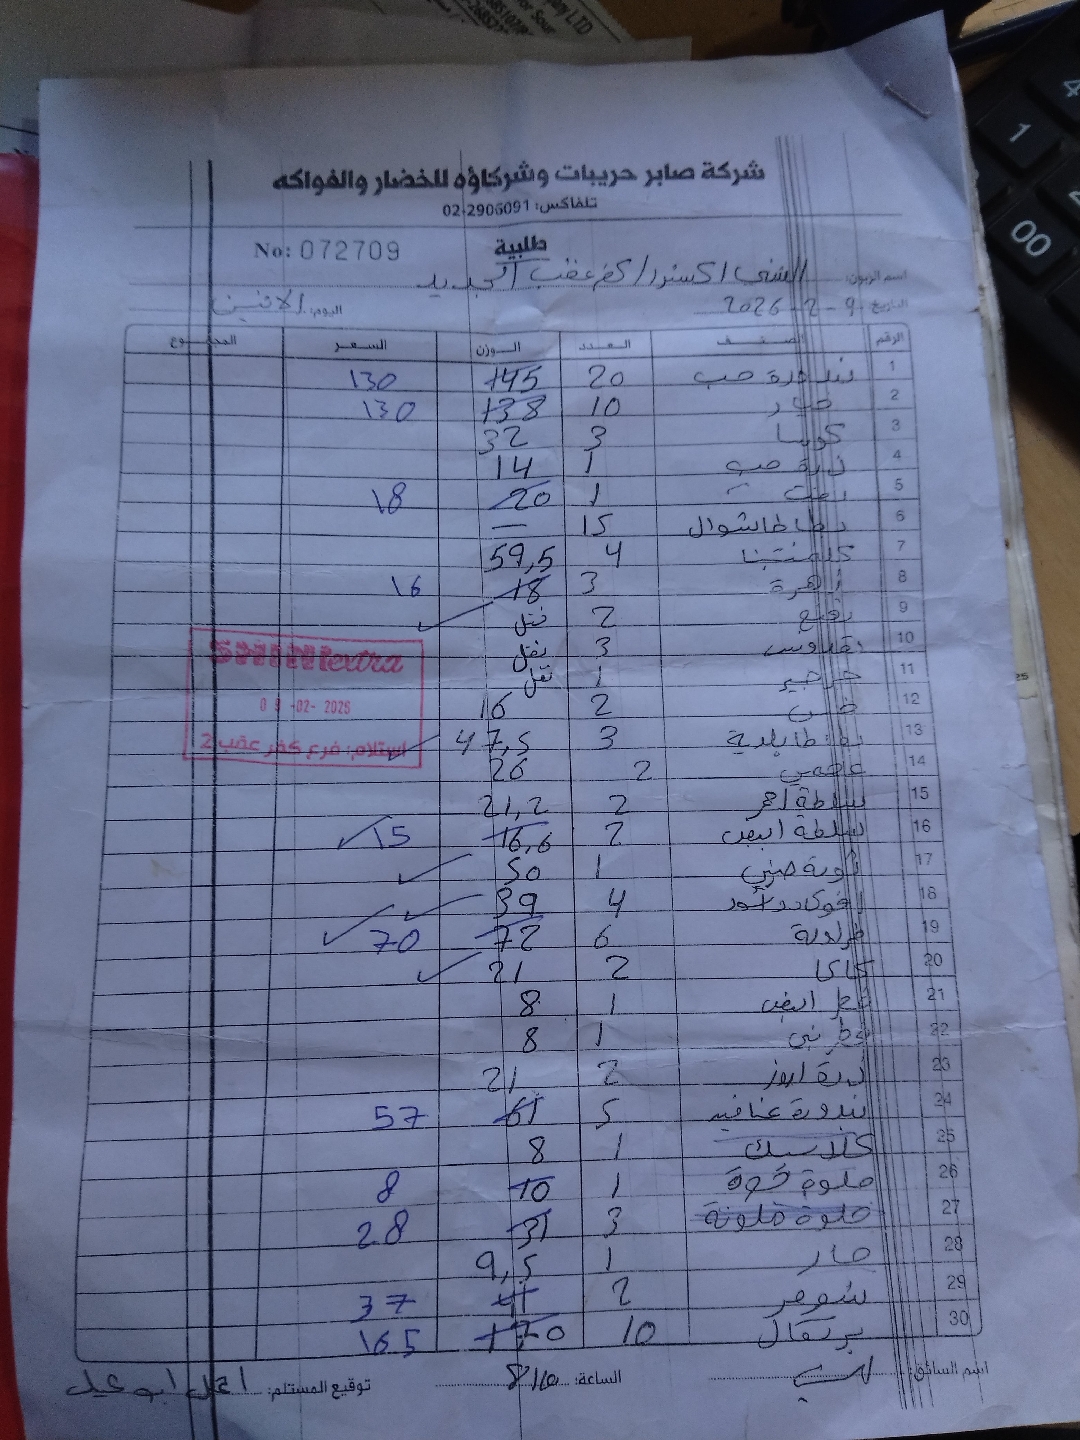 شركة صابر حريبات وشركاؤه للخضار والفواكه
تلفاكس: 02-2906091
طلبية
No: 072709
اسم الزبون: الشني اكسترا / كفر عقب الجديد
التاريخ: 9-2-2026 اليوم: الاثنين
الرقم الصنف العدد الوزن السعر المجموع
1 بندورة حب 20 145 130
2 خيار 10 138 130
3 كوسا 3 32
4 ذرة حب 1 14
5 1 20 18
6 بطاطا شوال 15 —
7 كلمنتينا 4 59,5
8 زهرة 3 18 16
9 2
10 3
11 جرجير 1
12 خس 2 16
13 بطاطا بلدية 3 47,5
14 عجمي 2 26
15 سلطة احمر 2 21,2
16 سلطة ابيض 2 16,6 15
17 صيني 1 50
18 افوكادو 4 39
19 فراولة 6 72 70
20 كاكا 2 21
21 فجل ابيض 1 8
22 1 8
23 2 21
24 بندورة عناقيد 5 61 57
25 كلاسيك 1 8
26 حلوة 1 10 8
27 حلوة ملونة 3 31 28
28 حار 1 9,5
29 شومر 2 41 37
30 برتقال 10 170 165
extra
09-02-2026
استلام: فرع كفر عقب 2
اسم السائق: الساعة: توقيع المستلم:
LTD
1
00